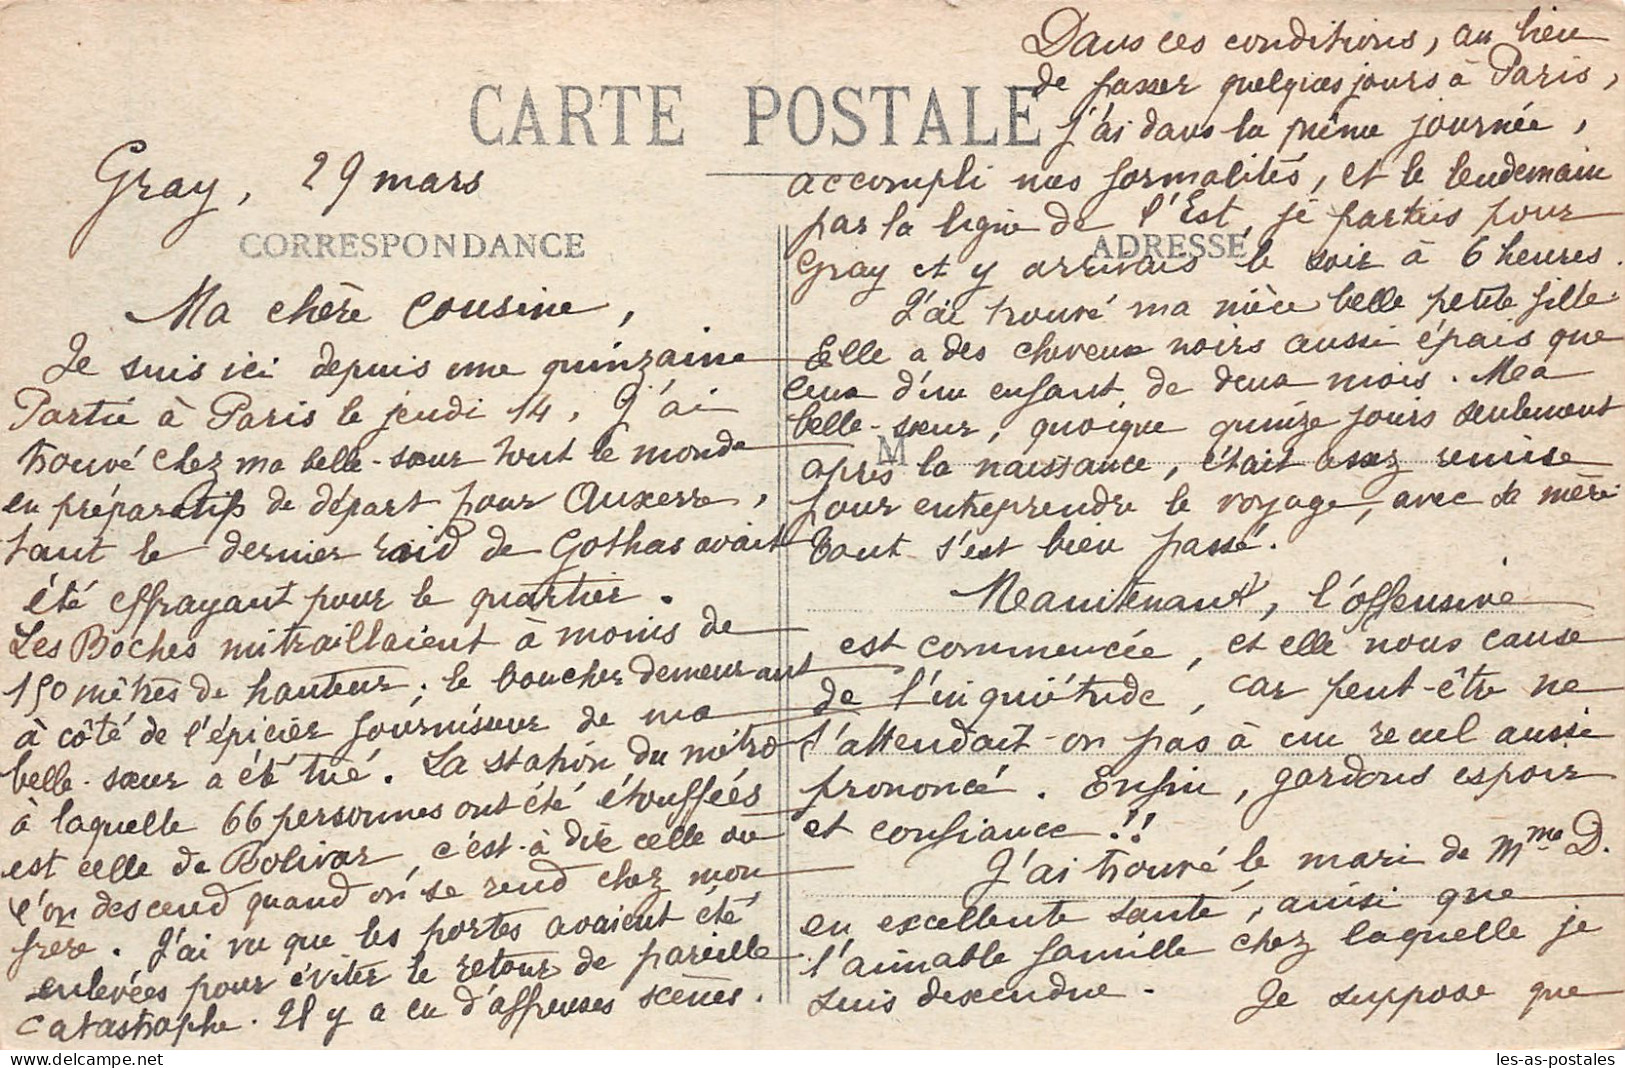 CARTE POSTALE
Gray, 29 mars
CORRESPONDANCE
Ma chère Cousine,
Je suis ici depuis une quinzaine
Partie à Paris le jeudi 14, J'ai
trouvé chez ma belle-sœur tout le monde
en préparatifs de départ pour Auxerre,
tant le dernier raid de Gothas avait
été effrayant pour le quartier.
Les Boches mitraillaient à moins de
150 mètres de hauteur; le boucher demeurant
à côté de l'épicier fournisseur de ma
belle-sœur a été tué. La station du métro
à laquelle 66 personnes ont été étouffées
est celle de Bolivar, c'est-à-dire celle où
l'on descend quand on se rend chez mon
frère. J'ai vu que les portes avaient été
enlevées pour éviter le retour de pareille
catastrophe. Il y a eu d'affreuses scènes.
Dans ces conditions, au lieu
de passer quelques jours à Paris,
j'ai dans la même journée,
accompli nos formalités, et le lendemain
par la ligne de l'Est, je partais pour
ADRESSE
Gray et y arrivais le soir à 6 heures.
J'ai trouvé ma nièce belle petite fille.
Elle a des cheveux noirs aussi épais que
ceux d'un enfant de deux mois. Ma
belle-sœur, quoique quinze jours seulement
M
après la naissance, était assez remise
pour entreprendre le voyage, avec sa mère
Tout s'est bien passé.
Maintenant, l'offensive
est commencée, et elle nous cause
de l'inquiétude, car peut-être ne
s'attendait-on pas à un recul aussi
prononcé. Enfin, gardons espoir
et confiance!!
J'ai trouvé le mari de Mme D.
en excellente santé, ainsi que
l'aimable famille chez laquelle je
suis descendue. Je suppose que
les-as-postales